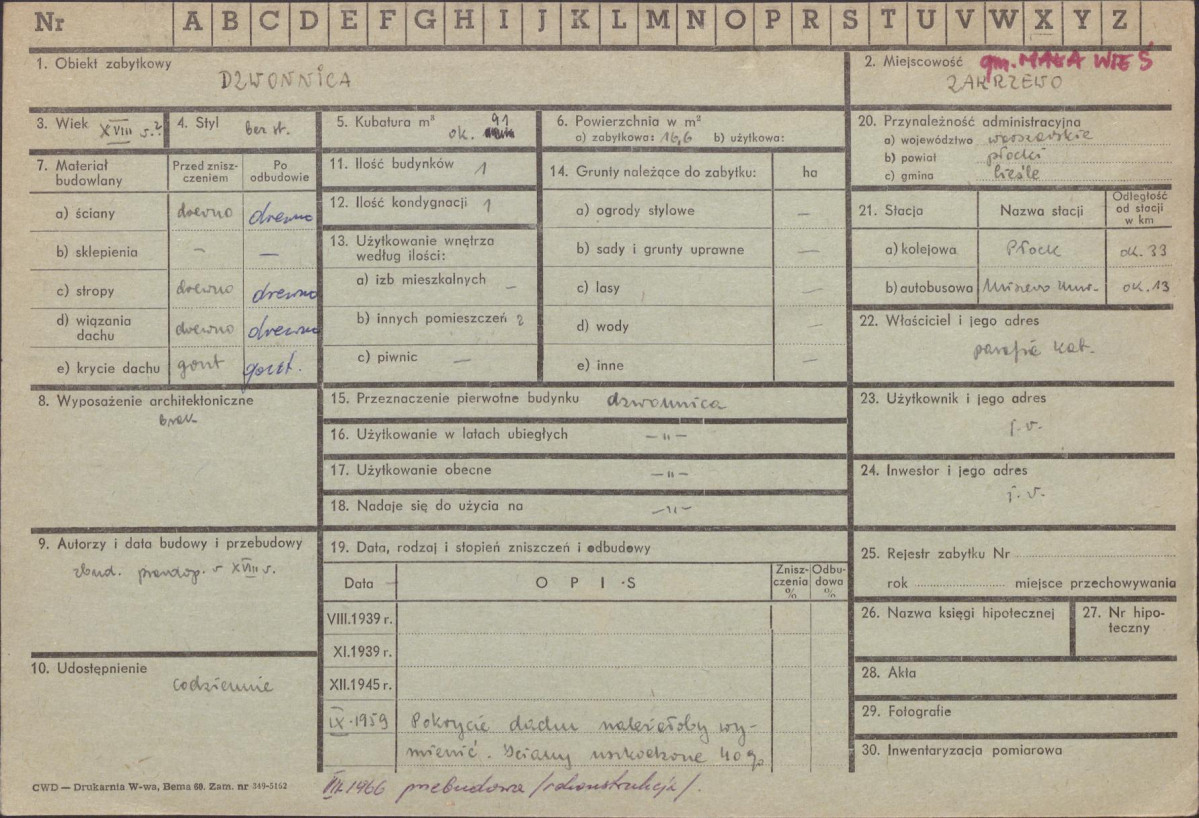 Nr A B C D E F G H I J K L M N O P R S T U V W X Y Z
1. Obiekt zabytkowy
DZWONNICA
2. Miejscowość gm. MAŁA WIEŚ
ZAKRZEWO
3. Wiek XVIII w.?
4. Styl bez st.
5. Kubatura m³ ok. 91
6. Powierzchnia w m²
a) zabytkowa: 16,6 b) użytkowa:
7. Materiał budowlany
Przed zniszczeniem
Po odbudowie
a) ściany drewno drewno
b) sklepienia – —
c) stropy drewno drewno
d) wiązania dachu drewno drewno
e) krycie dachu gont gont.
8. Wyposażenie architektoniczne
brak
9. Autorzy i data budowy i przebudowy
zbud. prawdop. w XVIII w.
10. Udostępnienie
codziennie
11. Ilość budynków 1
12. Ilość kondygnacji 1
13. Użytkowanie wnętrza
według ilości:
a) izb mieszkalnych –
b) innych pomieszczeń 2
c) piwnic —
14. Grunty należące do zabytku: ha
a) ogrody stylowe —
b) sady i grunty uprawne —
c) lasy —
d) wody —
e) inne —
15. Przeznaczenie pierwotne budynku dzwonnica
16. Użytkowanie w latach ubiegłych —„—
17. Użytkowanie obecne —„—
18. Nadaje się do użycia na —„—
19. Data, rodzaj i stopień zniszczeń i odbudowy
Data
OPIS
Zniszczenia %
Odbudowa %
VIII.1939 r.
XI.1939 r.
XII.1945 r.
IX.1959 Pokrycie dachu należałoby wy-
mienić. Ściany uszkodzone 40%
III.1966 przebudowa /rekonstrukcja/.
20. Przynależność administracyjna
a) województwo warszawskie
b) powiat płocki
c) gmina
21. Stacja
Nazwa stacji
Odległość od stacji w km
a) kolejowa Płock ok. 33
b) autobusowa Miszewo Mur. ok. 13
22. Właściciel i jego adres
parafia kat.
23. Użytkownik i jego adres
j.w.
24. Inwestor i jego adres
j.w.
25. Rejestr zabytku Nr
rok miejsce przechowywania
26. Nazwa księgi hipotecznej
27. Nr hipo-
teczny
28. Akta
29. Fotografie
30. Inwentaryzacja pomiarowa
CWD — Drukarnia W-wa, Bema 60. Zam. nr 349-5162